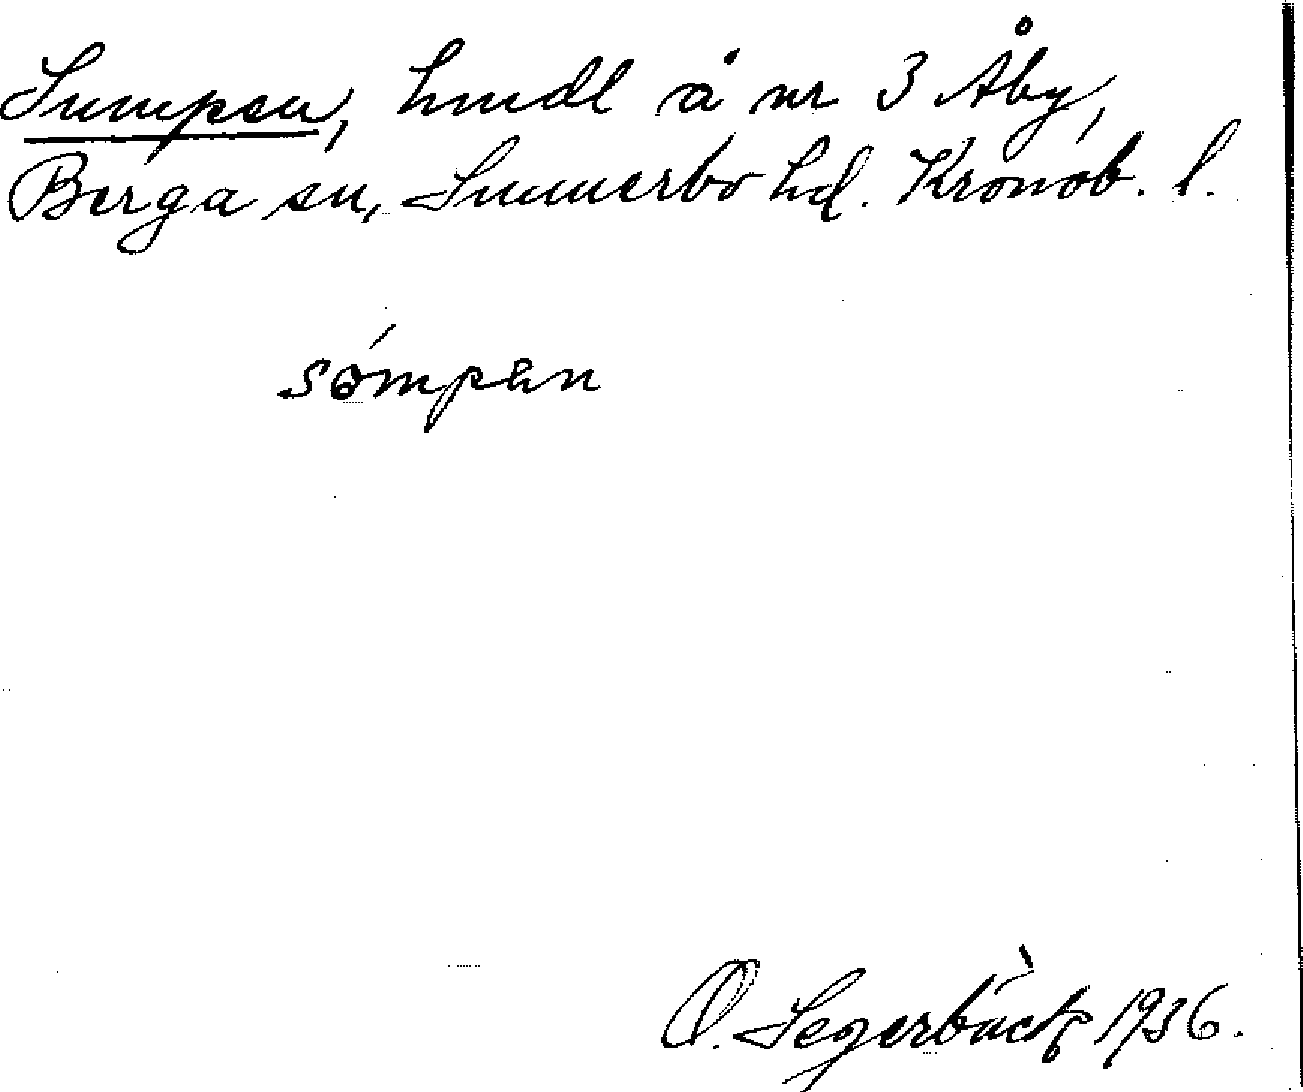 Sumpen, hmdl å nr 3 Åby,
Berga sn, Sunnerbo hd. Kronob. l.
sómpen
O. Segerbäck 1936.